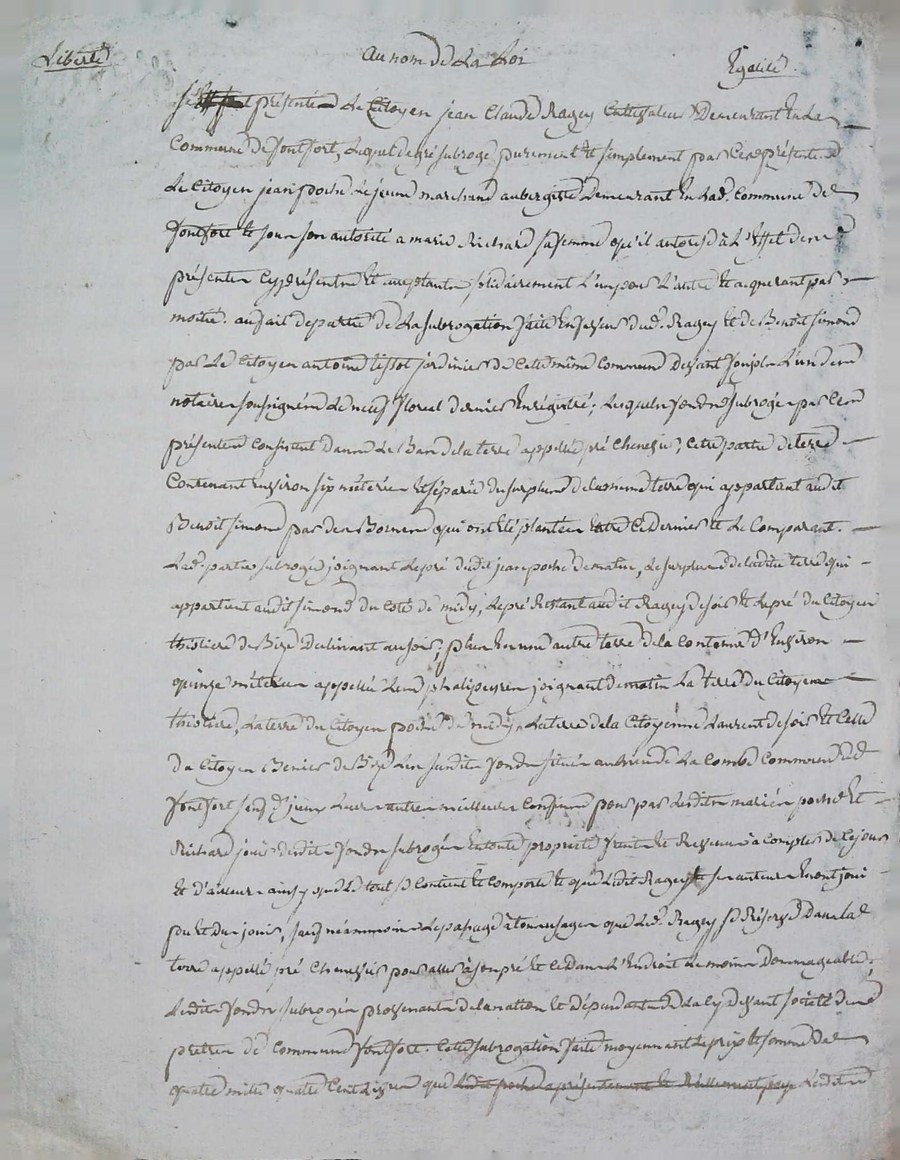 Liberté
au nom de La Loi
Egalité
présente Le Citoyen jean Claude Ragey Cultivateur Demeurant En La
Commune de fontfort, Lequel de gré subroge purement et simplement par Ces présentes
Le Citoyen jean poche Le jeune marchand aubergiste Demeurant En Lad. Commune de
fontfort et sous son autorité a marie Richard sa femme qu'il autorise à L'Effet des
présentes Cy présentes et acceptantes solidairement L'un pour L'autre et acquerant par
moitié. au fait de partie de La subrogation faite En faveur dud. Ragey et de Benoit simond
par Le Citoyen antoine tissot jardinier de Cette même Commune Devant L'un des
notaires soussignés Le neuf floreal dernier Enrégistré; Lesquels fonds subrogés par Ces
présentes Consistent dans Le Bas de la terre appellée pré Chenevis; Cette partie de terre
Contenant Environ six méterées Et séparée du surplus de la même terre qui appartient audit
Benoit simond par des Bornes qui ont été plantées Entre Ce dernier et Le Comparant.
Lad. partie subrogée joignant Le pré dudit jean poche de matin, Le surplus de ladite terre qui
appartient audit simond du Coté de midy, Le pré Restant audit Ragey de soir et Le pré du Citoyen
thiolière de Bize Declinant au soir; plus En une autre terre de la Contenue d'Environ
quinze méterées appellée joignant de matin La terre du Citoyen
thiolière, La terre du Citoyen poche de midy, La terre de la Citoyenne Laurent de soir Et Celle
Du Citoyen de Bize Les susdits fonds situés au de La Combe Commune de
fontfort sauf d'jeux Leurs autres meilleurs Confins pour par Lesdits mariés poche et
Richard jouir desdits fonds subrogés En toute propriété fruits et Revenus à Compter de Ce jour
Et d'ailleurs ainsy que Le tout se Contient et Comporte et que Ledit Ragey et ses auteurs En ont joui
pu et du jouir, sauf néammoins Le passage à tous usages que Led. Ragey se Réserve Dans la
terre appellée pré Chenevis pour aller à son pré Et Ce Dans L'Endroit Le moins Dommageable;
Lesdits fonds subrogés provenants de la nation et dépendants de La Cy devant société des
prêtres de Commune fontfort. Cette subrogation faite moyennant Le prix et somme de
quatre mille quatre Cent Livres que Ledit poche a présentement et Réellement payé